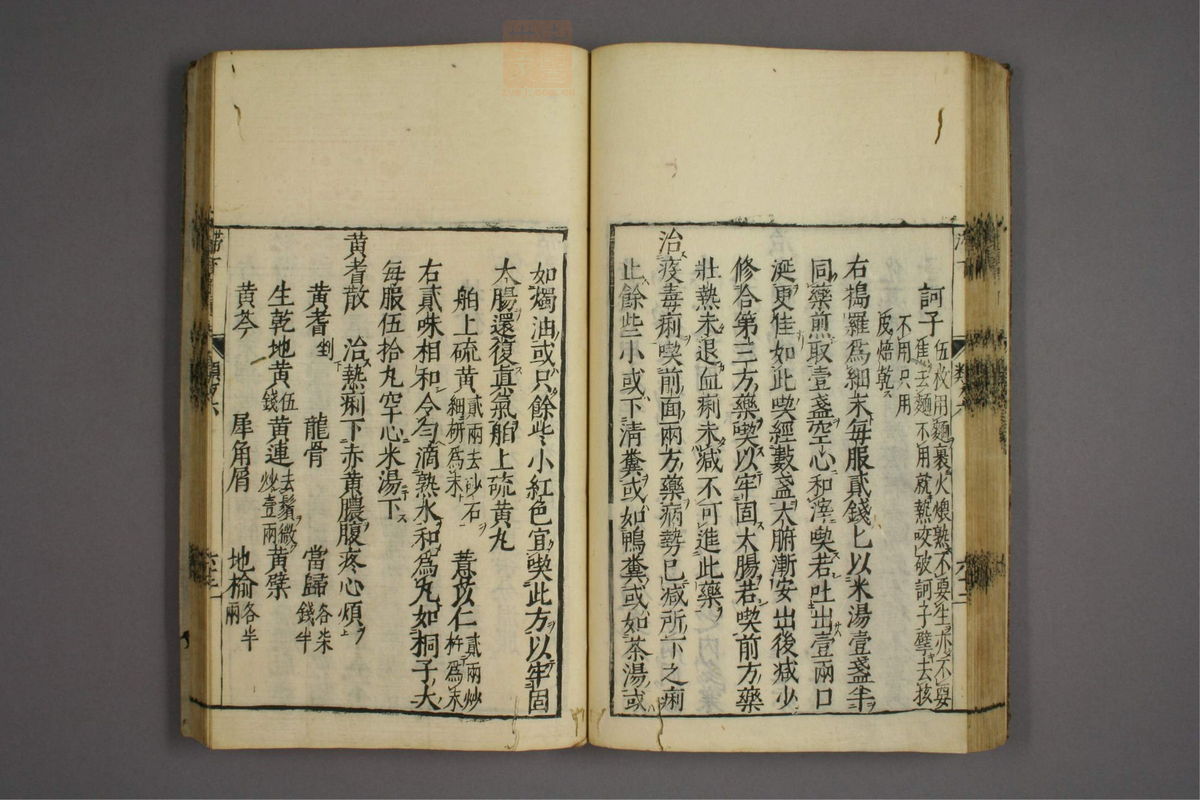 訶子 伍枚用麵裹火煨熟不要生亦不要
焦去麵不用就熱咬破訶子擘去核
不用只用
皮焙乾
右搗羅爲細末毎服貳錢匕以米湯壹盞半
同藥煎取壹盞空心和滓喫若吐出壹兩口
涎更佳如此喫經數盞大腑漸安出後減少
修合第三方藥喫以牢固大腸若喫前方藥
壯熱未退血痢未減不可進此藥
治疫毒痢喫前面兩方藥病勢已减所下之痢
止餘些小或下清糞或如鴨糞或如茶湯或
如燭油或只餘些小紅色宜喫此方以牢固
大腸還復真氣舶上硫黄丸
舶上硫黄 貳兩去砂石細研爲末 薏苡仁 貳兩炒杵爲末
右貳味相和令匀滴熟水和爲丸如桐子大
毎服伍拾丸空心米湯下
黄耆散 治熱痢下赤黄膿腹疼心煩
黄耆 剉 龍骨 當歸 各柒錢半
生乾地黄 伍錢 黄連 去鬚微炒壹兩 黄蘗
黄芩 犀角屑 地榆 各半兩